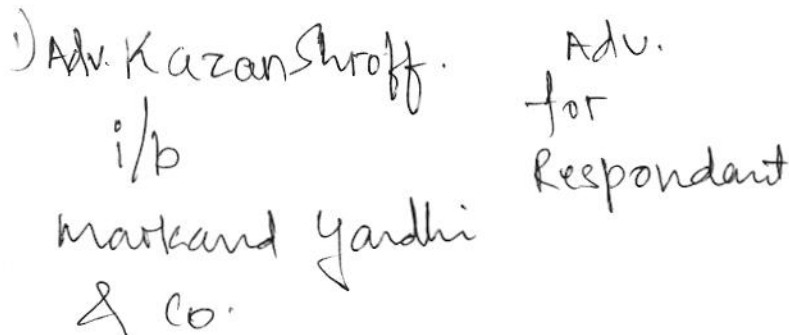 1) Adv. Kazan Shroff.
i/b
Markand Gandhi
& Co.
Adv.
for
Respondant